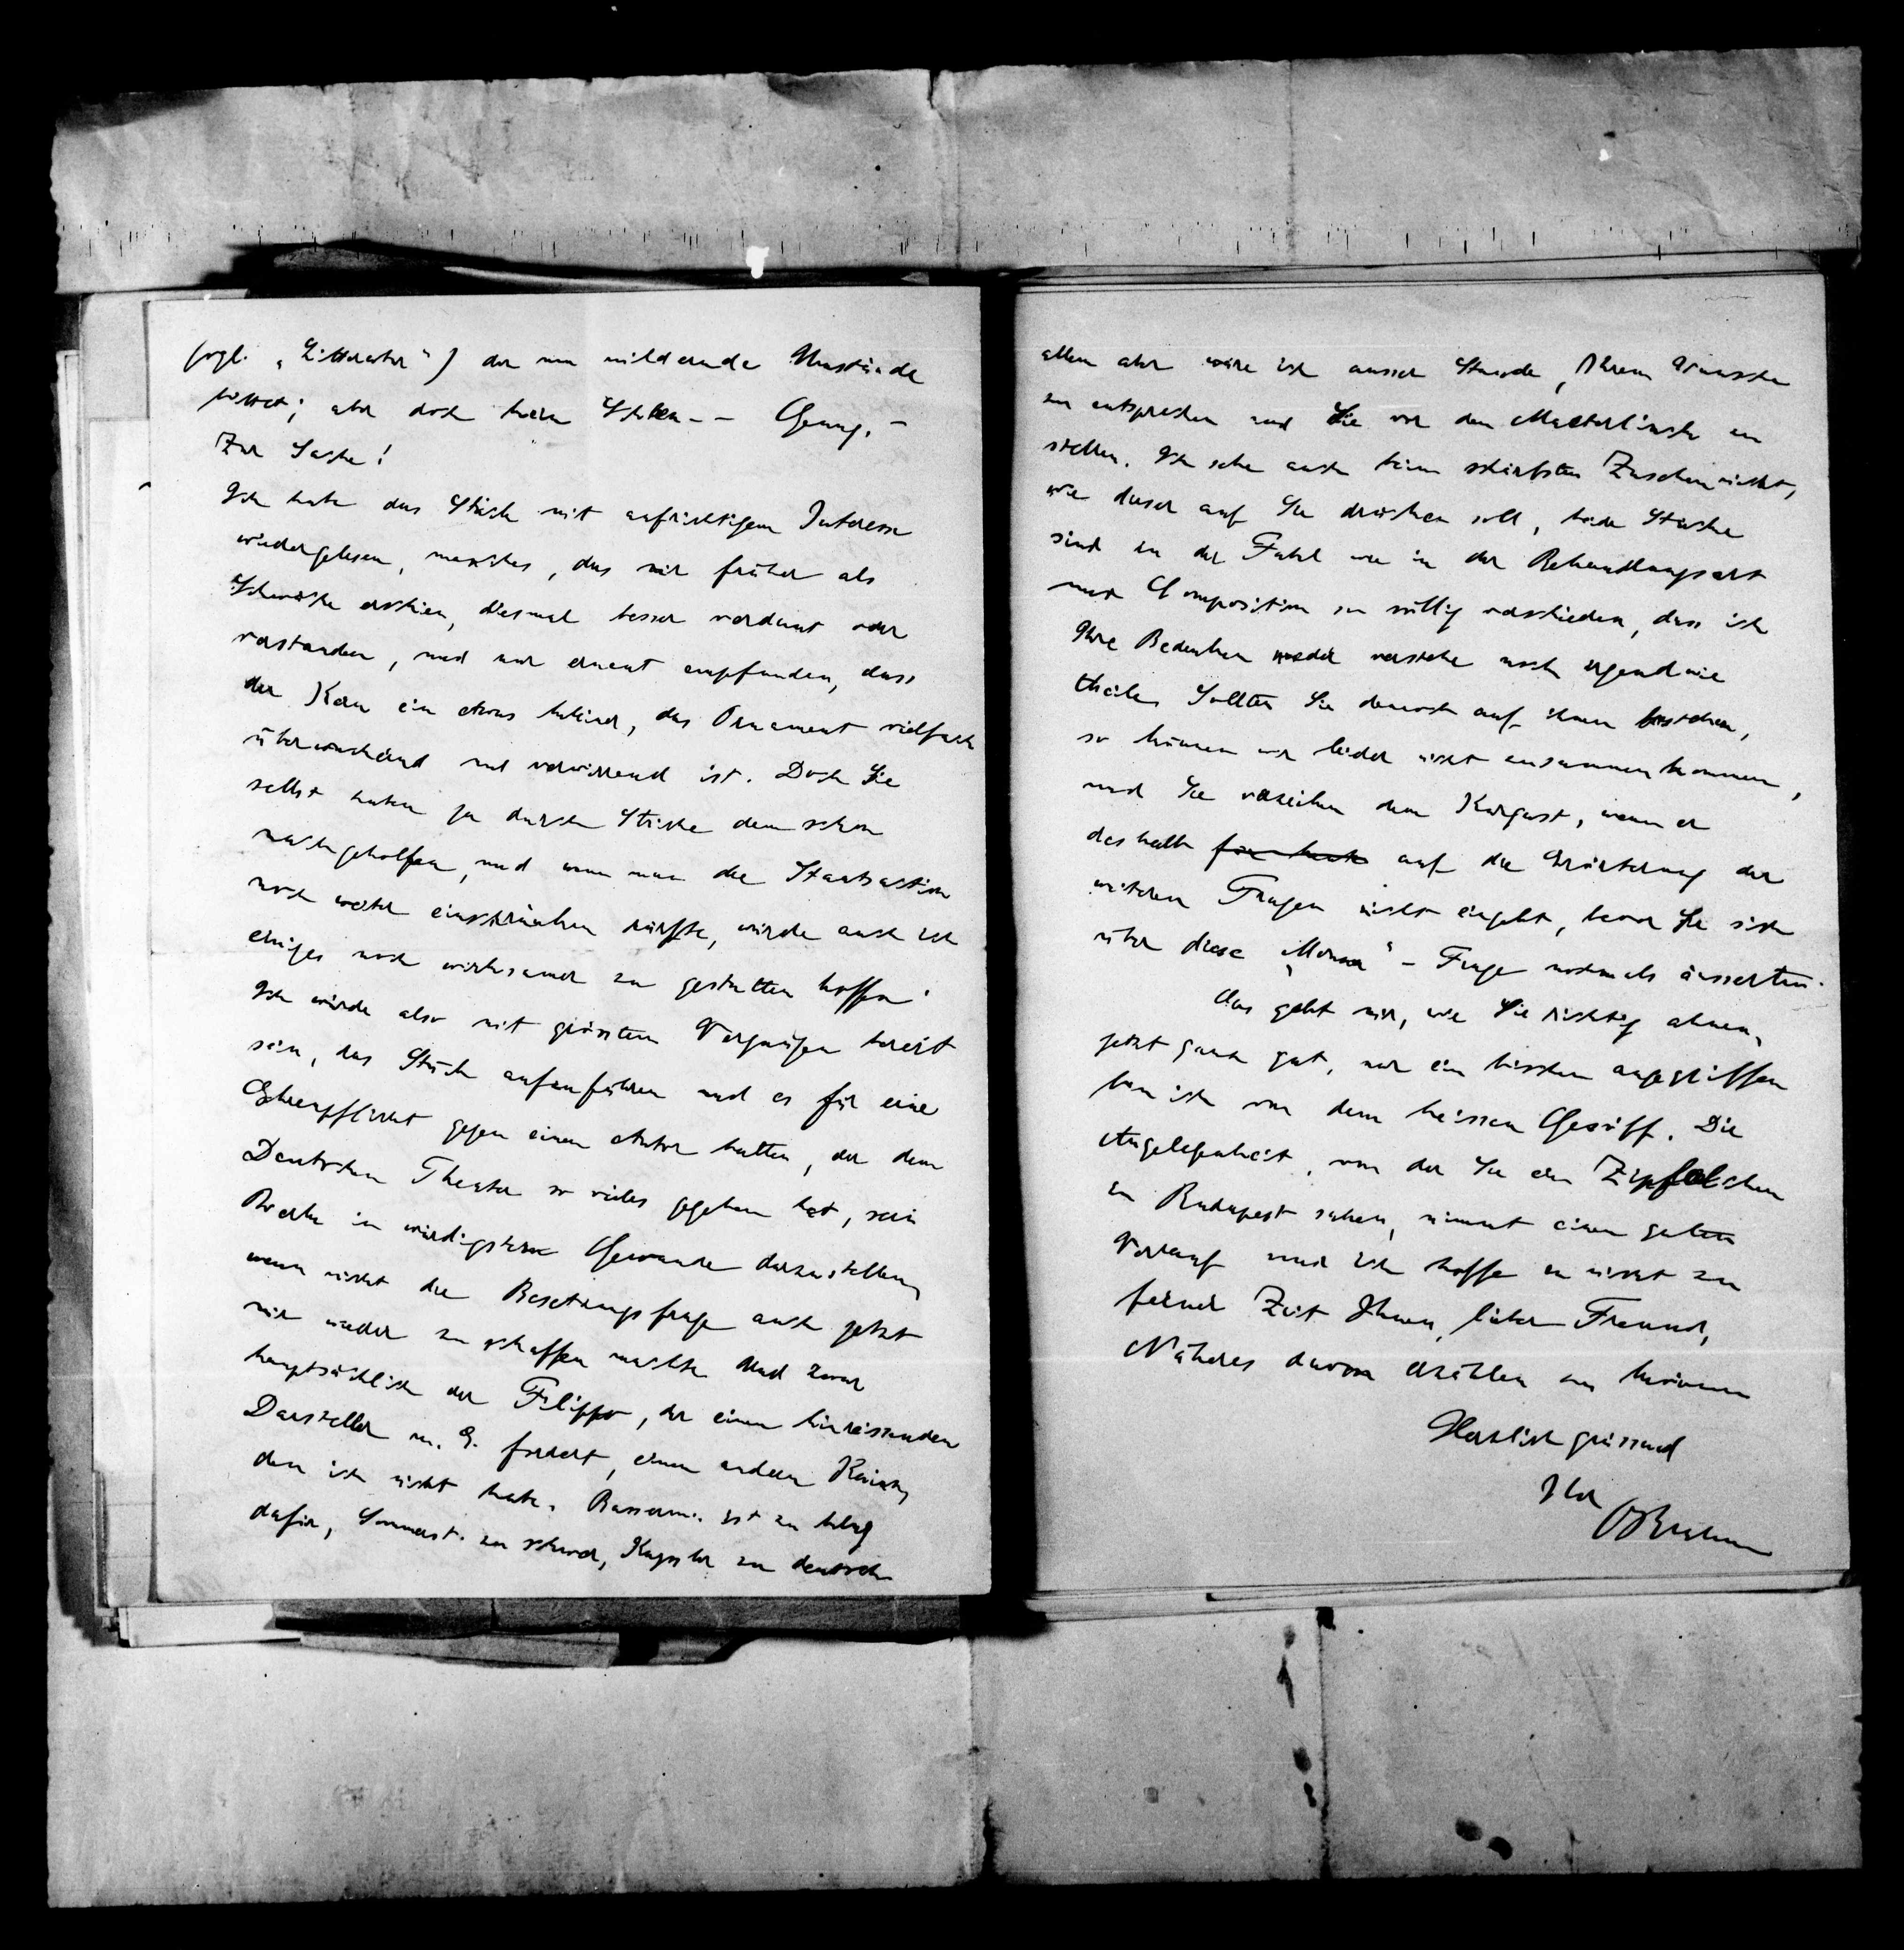 (vgl. „Litteratur") der um mildernde Umstände
bittet; aber doch kein Stolen – – Genug. –
Zur Sache!
Ich habe das Stück mit aufrichtigem Interesse
wiedergelesen, manches, das mir früher als
Schwäche erschien, diesmal besser verdaut oder
verstanden, und nur erneut empfunden, dass
der Kern ein etwas kleiner, das Ornament vielfach
überwuchernd und verwirrend ist. Doch Sie
selbst haben ja durch Striche dem schon
nachgeholfen, und wenn man die Staatsaction
noch weiter einschränken dürfte, würde auch ich
einiges noch wirksamer zu gestalten hoffen.
Ich würde also mit grösstem Vergnügen bereit
sein, das Stück aufzuführen und es für eine
Ehrenpflicht gegen einen Autor halten, der dem
Deutschen Theater so vieles gegeben hat, sein
Werk in würdigstem Gewande darzustellen,
wenn nicht die Besetzungsfrage auch jetzt
mir wieder zu schaffen machte. Und zwar
hauptsächlich der Filippo, der einen hinreissenden
Darsteller m. E. fordert, einen andern Kainz,
den ich nicht habe. Basserm. ist zu klug
dafür, Sommerst. zu schwer, Kayssler zu deutsch
allem aber wäre ich ausser Stande, Ihrem Wunsche
zu entsprechen und Sie vor den Maeterlinck zu
stellen. Ich sehe auch beim schärfsten Zusehen nicht,
wie dieser auf Sie drücken soll, beide Stücke
sind in der Fabel wie in der Behandlungsart
und Composition so völlig verschieden, dass ich
Ihre Bedenken weder verstehe noch irgendwie
theile. Sollten Sie dennoch auf ihnen bestehen,
so können wir leider nicht zusammenkommen,
und Sie verzeihen dem Kurgast, wenn er
deshalb auf die Erörterung der
weiteren Fragen nicht eingeht, bevor Sie sich
über diese „Monna" – Frage nochmals äusserten.
Das geht mir, wie Sie richtig ahnen,
jetzt ganz gut, nur ein bisschen angegriffen
bin ich von dem heissen Gesöff. Die
Angelegenheit, von der Sie ein Zipfelchen
in Budapest sahen, nimmt einen guten
Verlauf und ich hoffe in nicht zu
ferner Zeit Ihnen, lieber Freund,
Näheres davon erzählen zu können
Herzlich grüssend
Ihr
OBrahm